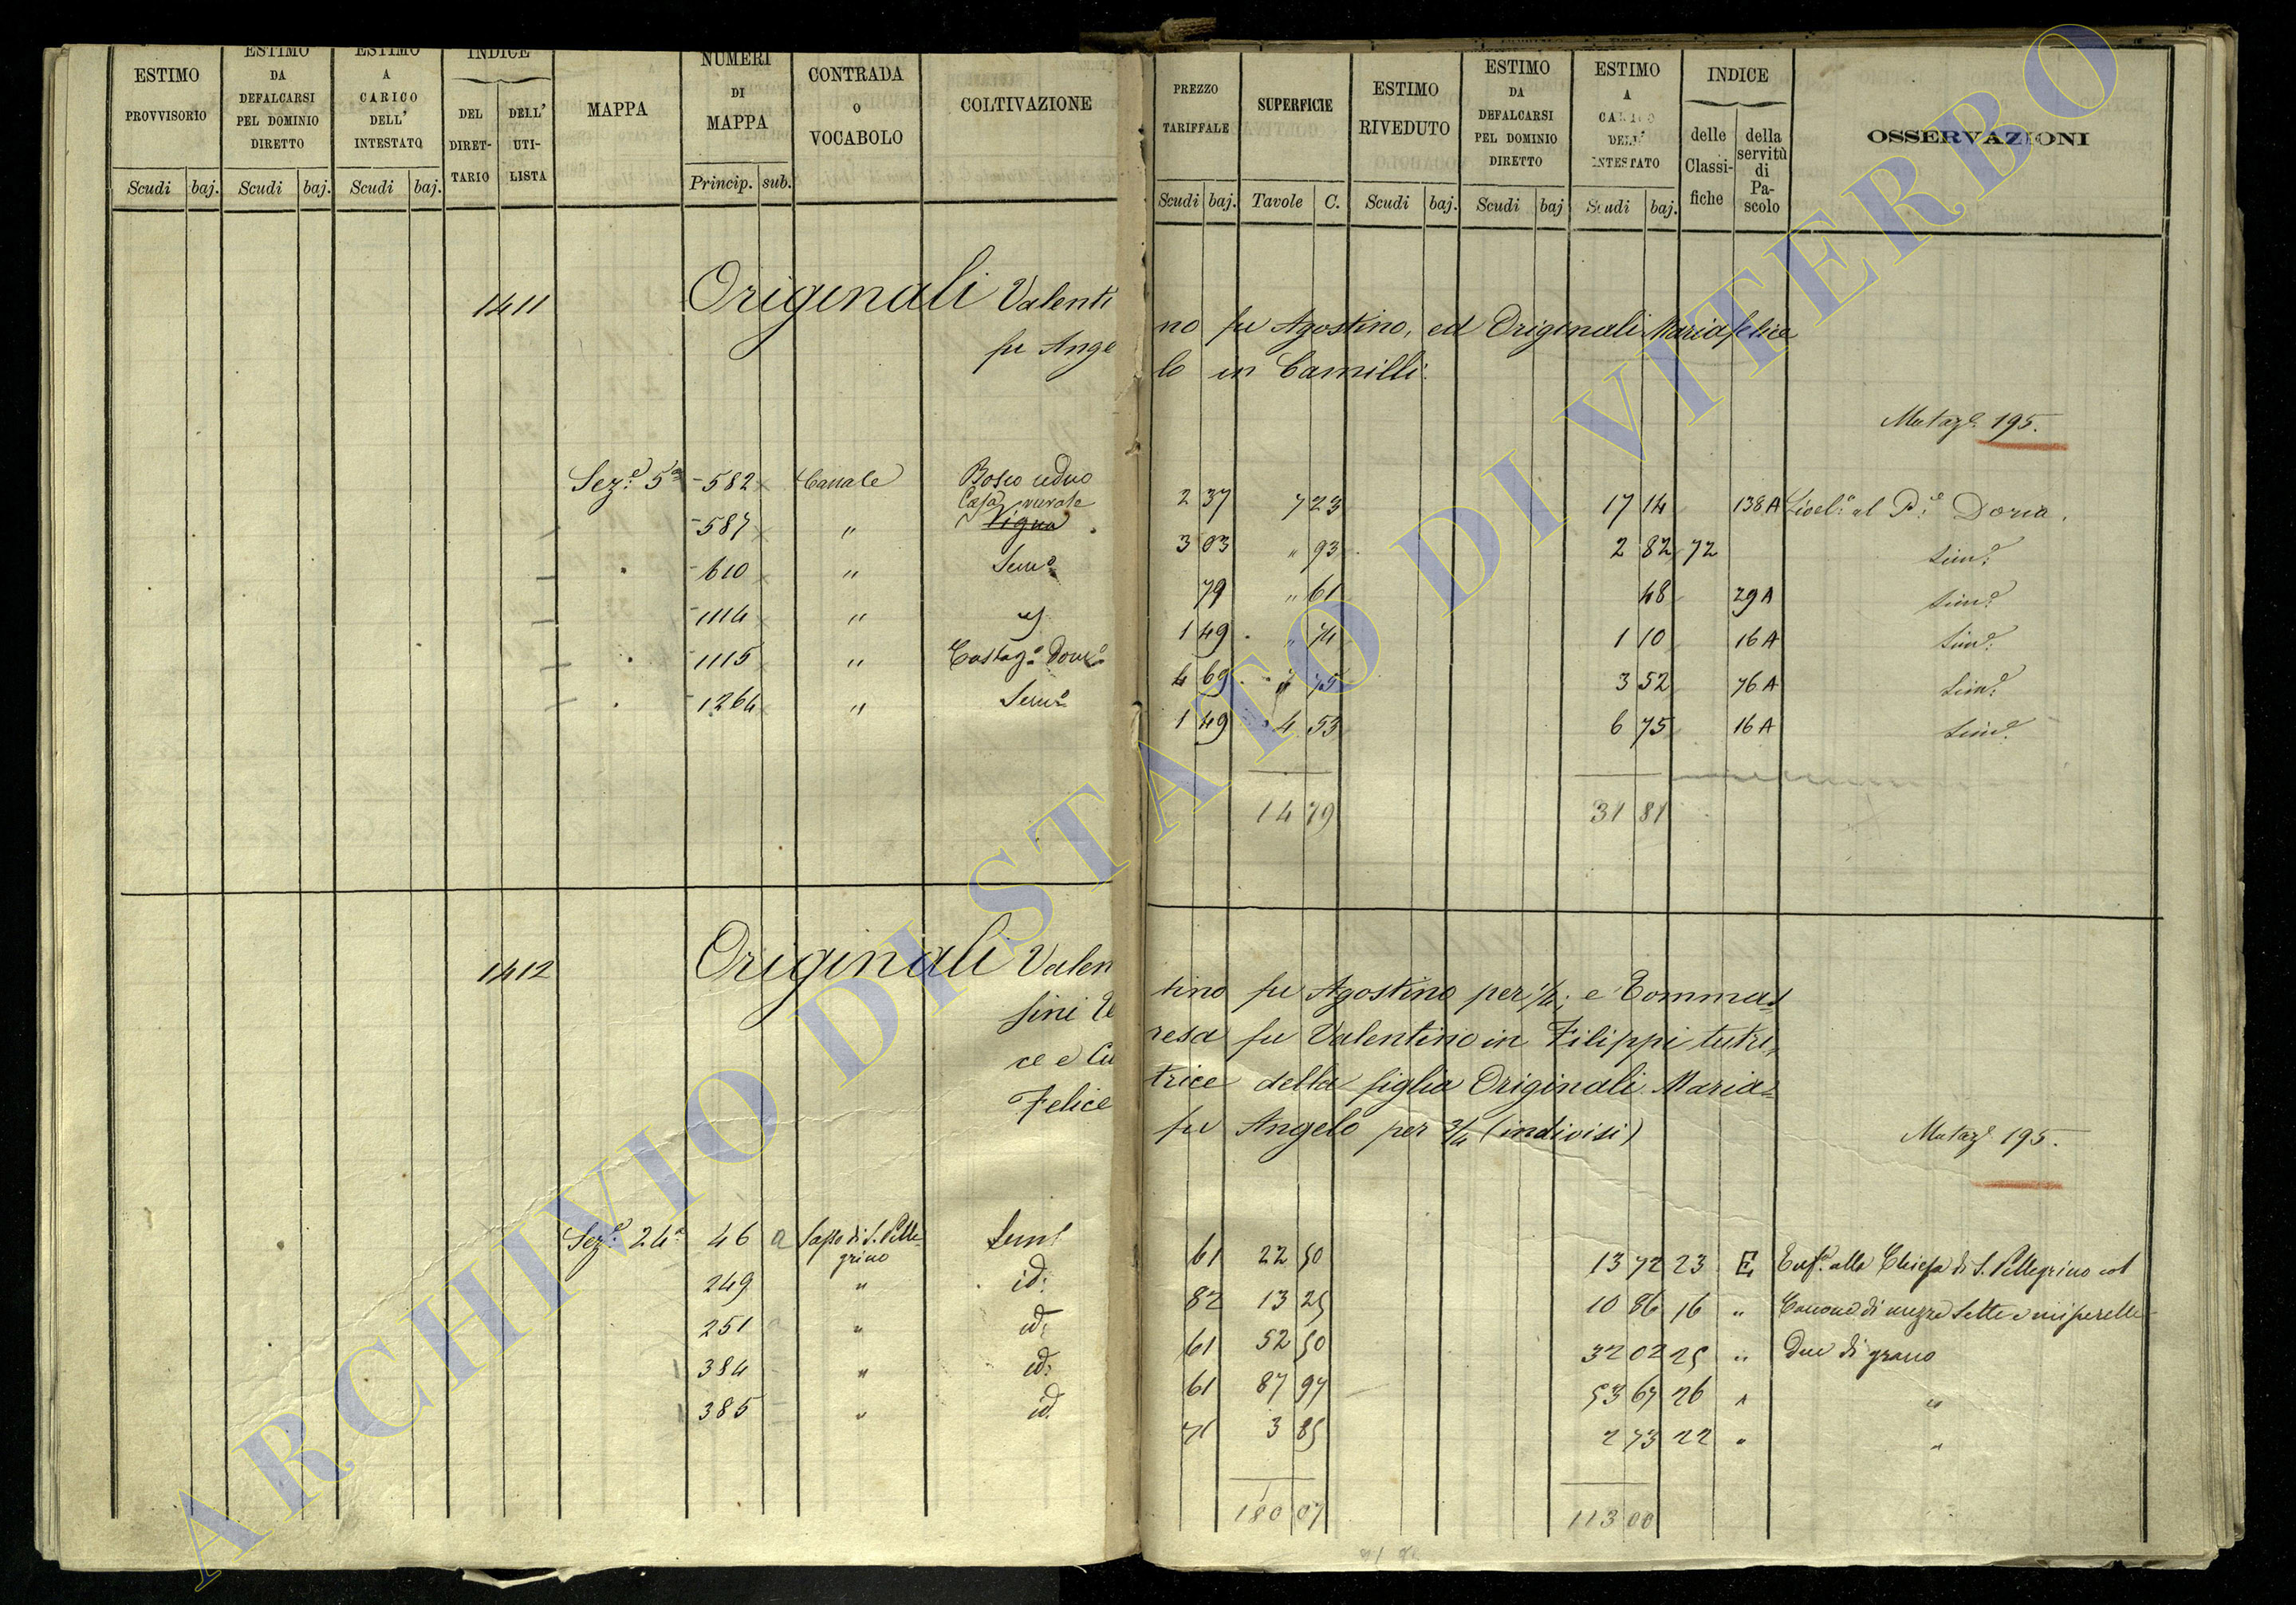 ESTIMO PROVVISORIO
ESTIMO DA DEFALCARSI PEL DOMINIO DIRETTO
ESTIMO A CARICO DELL' INTESTATO
INDICE
DEL DIRET-TARIO
DELL' UTI-LISTA
MAPPA
NUMERI DI MAPPA
CONTRADA o VOCABOLO
COLTIVAZIONE
PREZZO TARIFFALE
SUPERFICIE
ESTIMO RIVEDUTO
ESTIMO DA DEFALCARSI PEL DOMINIO DIRETTO
ESTIMO A CARICO DELL' INTESTATO
INDICE
delle Classi-fiche
della servitù di Pa-scolo
OSSERVAZIONI
Scudi baj. Scudi baj. Scudi baj. Princip. sub. Scudi baj. Tavole C. Scudi baj. Scudi baj Scudi baj.
1411 Originali Valenti no fu Agostino, ed Originali Mariafelice
fu Ange lo in Camilli
Mutaz.e 195.
Sez.e 5a 582 Canale Bosco ceduo 2 37 7 23 17 14 138 A al P.e Doria.
Casa murale
587 " Vigna 3 03 " 93 2 82 72 Sim.e
610 " Sem.o 79 " 61 48 29 A Sim.e
1114 " 1 49 " 74 1 10 16 A Sim.e
1115 " Castag.o Dom.o 4 69 " 75 3 52 76 A Sim.e
1264 " Sem.o 1 49 4 53 6 75 16 A Sim.e
14 79 31 81
1412 Originali Valen tino fu Agostino per 1/4; e Tommas
sini Te resa fu Valentino in Filippi tutri,
ce e Cu trice della figlia Originali Maria=
Felice fu Angelo per 3/4 (indivisi)
Mutaz.e 195.
Sez.e 24a 46 a Sasso di S. Pelle- Sem.o 61 22 50 13 72 23 E Enf.a alla Chiesa di S. Pellegrino col
grino
249 " id: 82 13 25 10 86 16 " Canone di mezzo
251 " id: 61 52 50 32 02 25 " Due di grano
384 " id: 61 87 97 53 67 26 " "
385 " id. 71 3 85 2 73 22 " "
180 07 113 00
ARCHIVIO DI STATO DI VITERBO